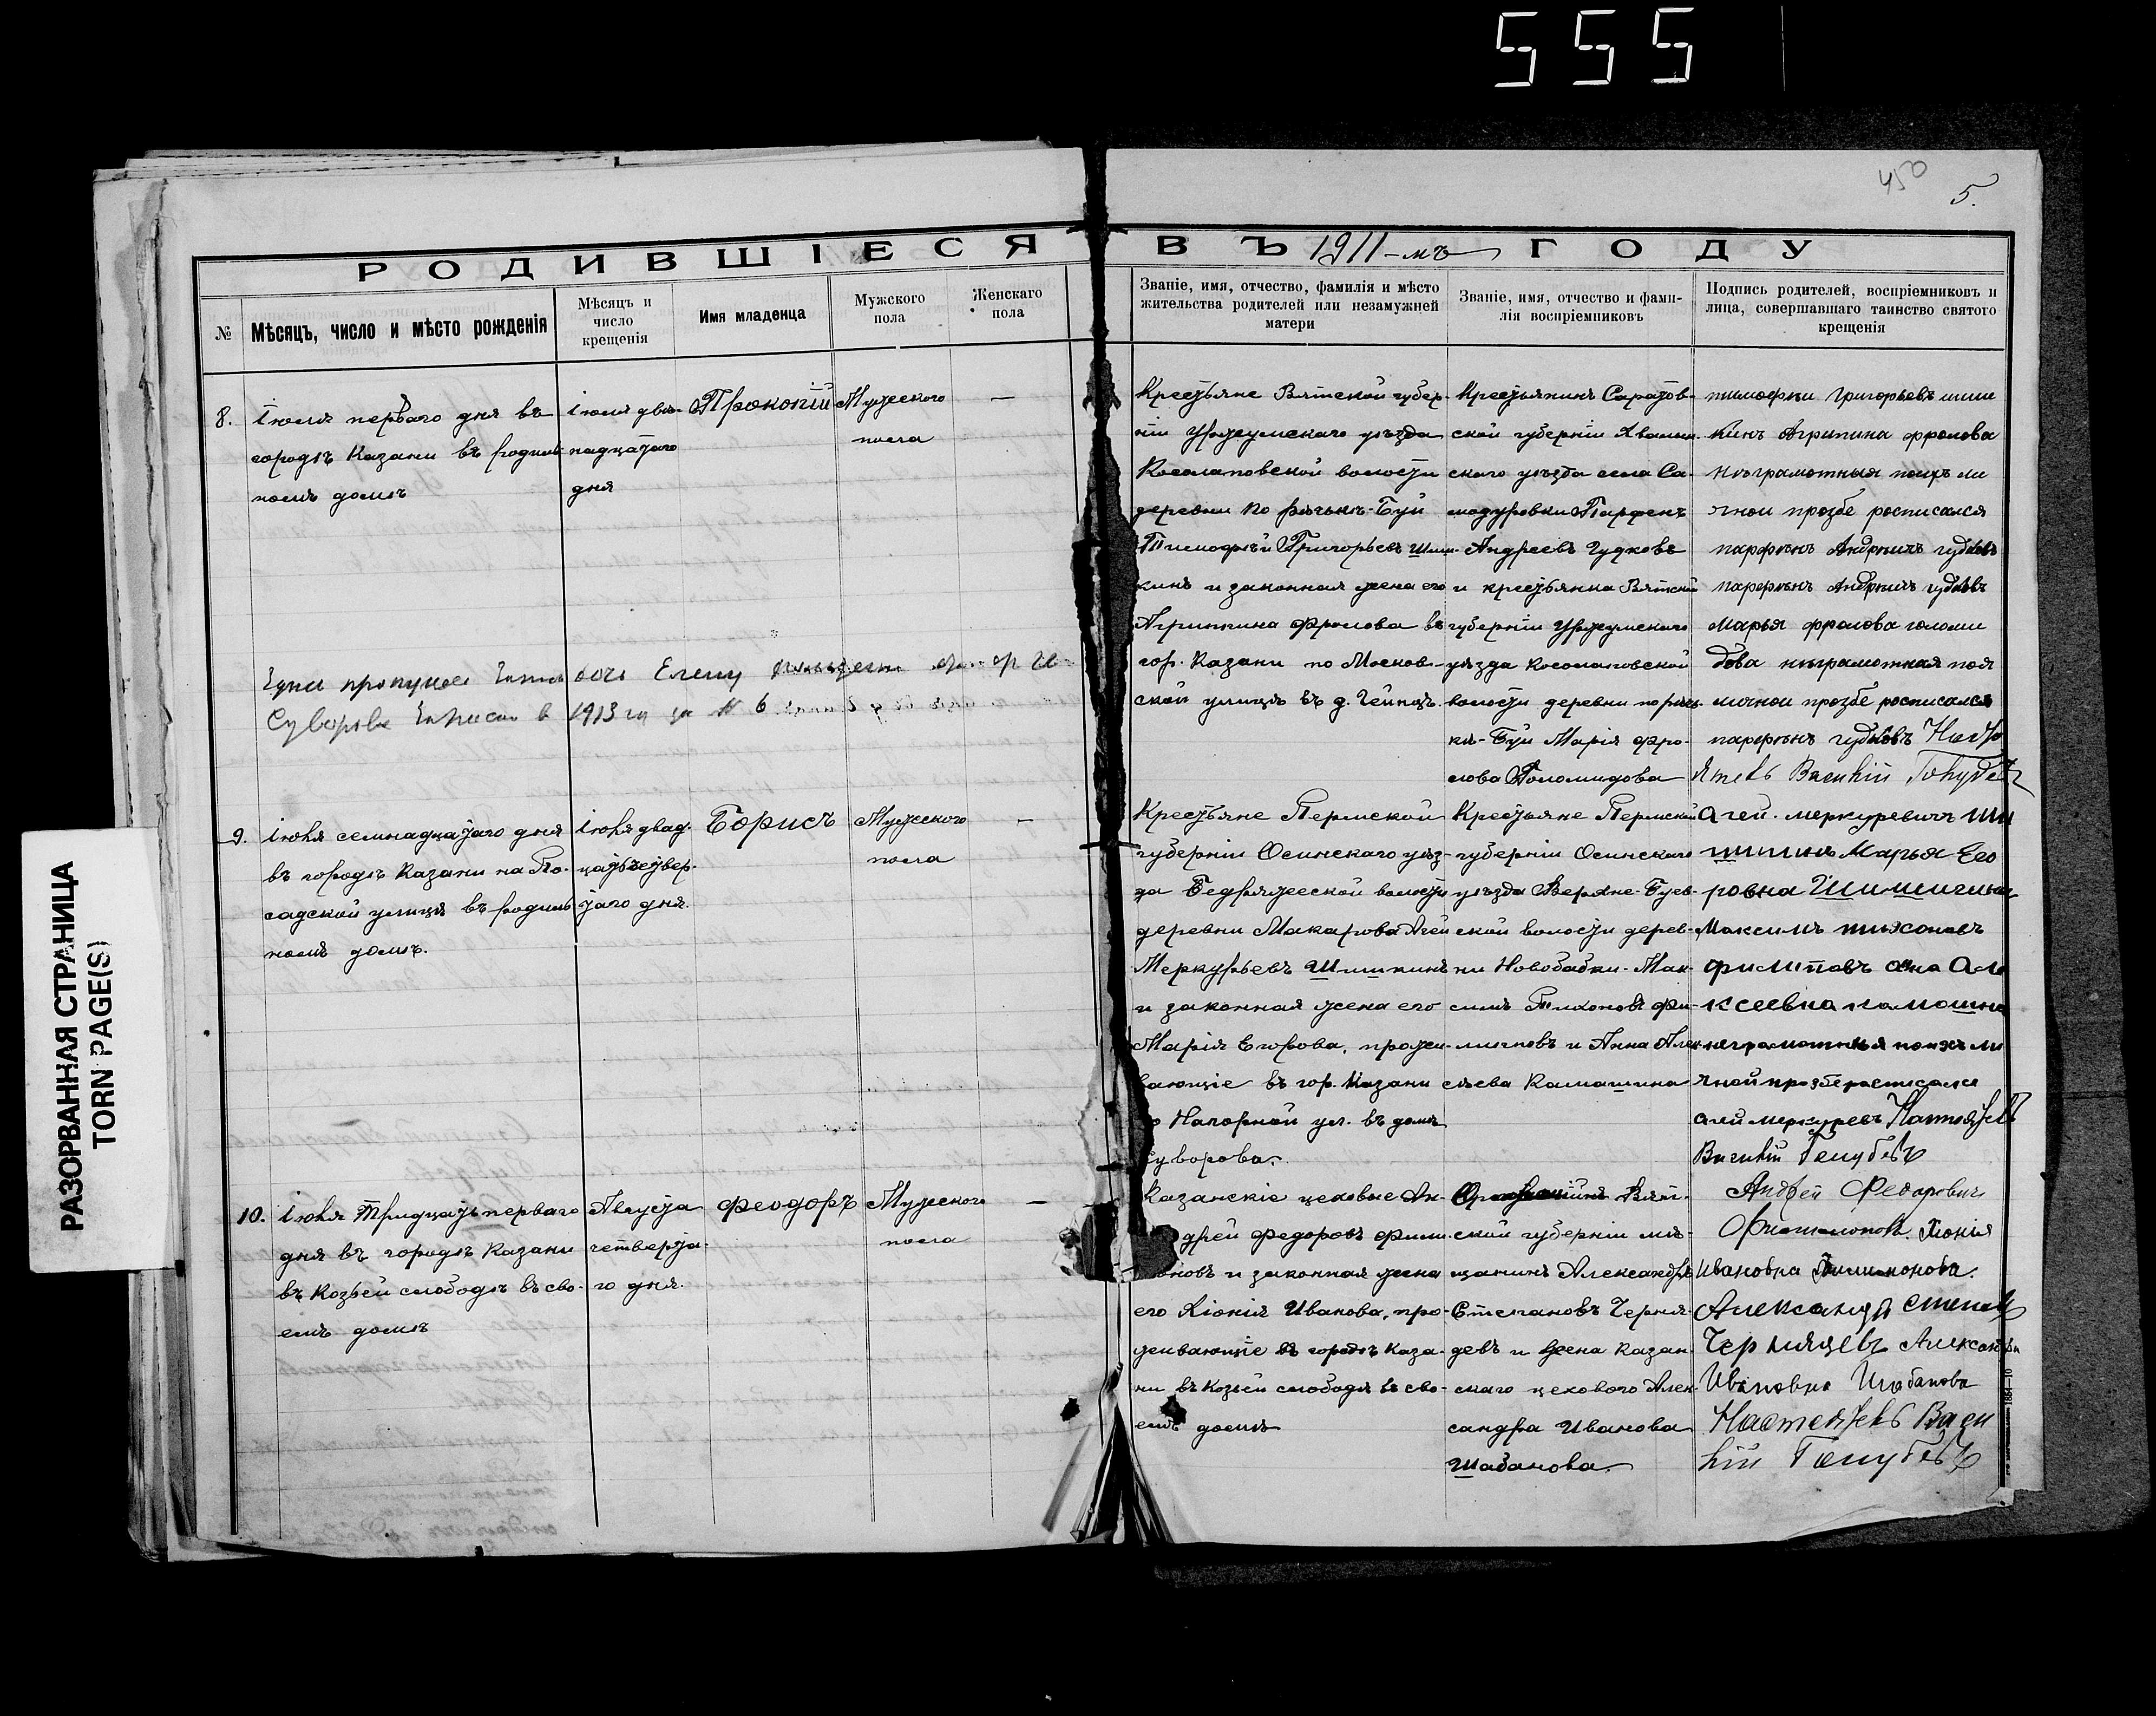 555
450
5.
РАЗОРВАННАЯ СТРАНИЦА
TORN PAGE(S)
РОДИВШІЕСЯ ВЪ 1911-мъ ГОДУ
№
Мѣсяцъ, число и мѣсто рожденія
Мѣсяцъ и
число
крещенія
Имя младенца
Мужского
пола
Женскаго
пола
Званіе, имя, отчество, фамилія и мѣсто
жительства родителей или незамужней
матери
Званіе, имя, отчество и фами-
лія воспріемниковъ
Подпись родителей, воспріемниковъ и
лица, совершавшаго таинство святого
крещенія
8.
Іюля перваго дня въ
городѣ Казани въ родиль-
номъ домѣ
Іюля две-
надцатаго
дня
Прокопій
Мужеского
пола
—
Крестьяне Вятской губер-
ніи Уржумскаго уѣзда
Косолаповской волости
деревни по рѣчькѣ-Буй
Тимофѣй Григорьевъ Шиш-
кинъ и законная жена его
Агриппина Фролова въ
гор. Казани по Москов-
ской улицѣ въ д. Гейнцъ.
Крестьянинъ Саратов-
ской губерніи Хвалын-
скаго уѣзда села Са-
модуровки Парфенъ
Андреевъ Гудковъ
и крестьянка Вятской
губерніи Уржумскаго
уѣзда Косолаповской
волости деревни по рѣч-
кѣ-Буй Марія Фро-
лова Голомидова
тимофки григорьевъ шиш
кинъ Агрипина фролова
нѣграмотныя поихъ ли
чнои прозбе росписался
парфѣнъ Андрѣичъ гудковъ
парфѣнъ Андрѣичъ гудковъ
Марья фролова голоми
дова нѣграмотная поя
личнои прозбе росписался
парфѣнъ гудковъ Насто
ятель Василій Голубевъ
Суворова 1913 за № 6
9.
Іюля семнадцатаго дня
въ городѣ Казани на По-
садской улицѣ въ родиль-
номъ домѣ.
Іюля двад-
цать четвер-
таго дня.
Борисъ
Мужеского
пола
—
Крестьяне Пермской
губерніи Осинскаго уѣз-
да Бедряжской волости
деревни Макарова Агей
Меркурьевъ Шишкинъ
и законная жена его
Марія Егорова, прожи-
вающіе въ гор. Казани
Нагорной ул. въ домѣ
Суворова.
Крестьяне Пермской
губерніи Осинскаго
уѣзда Верхне-Буев-
ской волости дерев-
ни Новобабки-Мак-
симъ Тихоновъ Фи-
липповъ и Анна Алек-
сѣева Камашина
Агей. меркуревичъ Ши
шкинъ Марья Его
ровна Шишкина
Максимъ тихоновъ
филиповъ Анна Але
ксеевна камашина
неграмотныя поихъ ли
чной прозбе расписался
агей меркуревъ Настоятель
Василій Голубевъ
10.
Іюля тридцать перваго
дня въ городѣ Казани
въ Козьей слободѣ въ сво-
емъ домѣ
Августа
четверта-
го дня.
Феодоръ
Мужеского
пола
—
Казанскіе цеховые Ан-
дрей Федоровъ Фили-
моновъ и законная жена
его Хіонія Иванова, про-
живающіе въ городѣ Каза-
ни въ Козьей слободѣ въ сво-
емъ домѣ
Вят-
ской губерніи мѣ-
щанинъ Александръ
Степановъ Черня-
девъ и жена Казан-
скаго цехового Алек-
сандра Иванова
Шабанова.
Андрей Федоровичъ
Филимоновъ. Хіонія
Ивановна Филимонова.
Александръ Степан
Чернядевъ Александра
Ивановна Шабанова
Настоятель Васи
лій Голубевъ